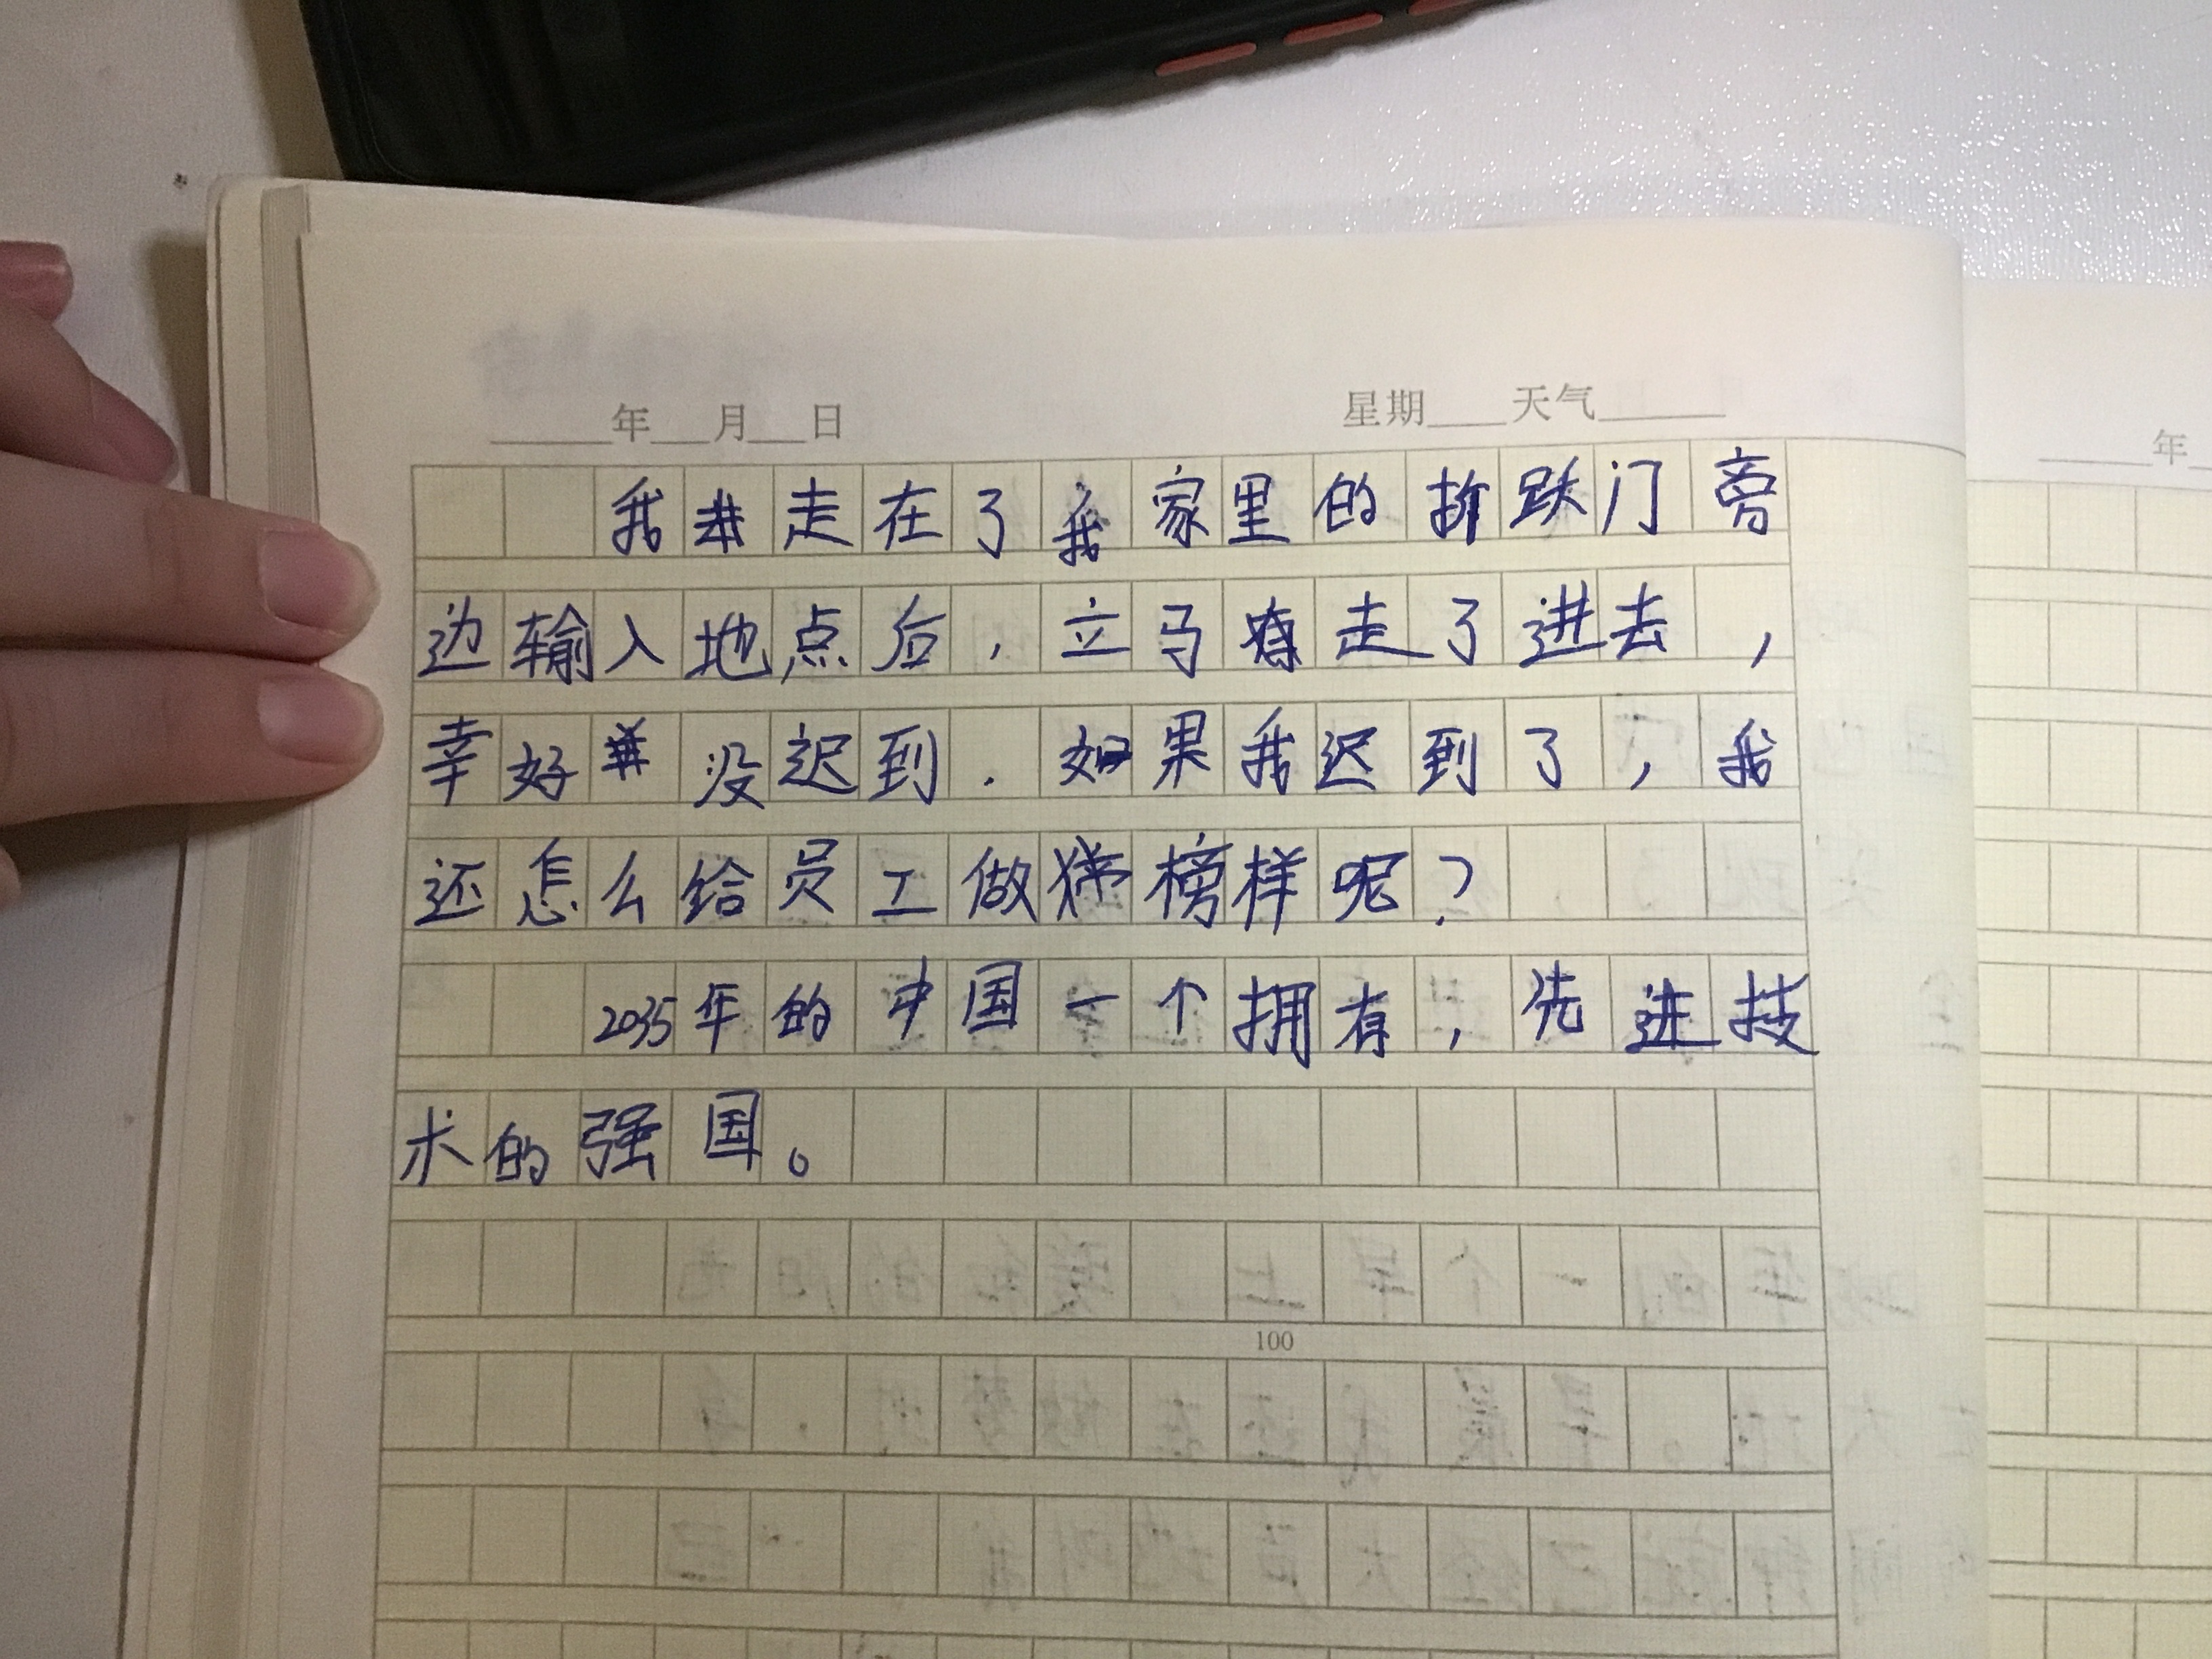 年 月 日 星期 天气
我走在了我家里的折跃门旁
边输入地点后,立马走了进去,
幸好没迟到.如果我迟到了,我
还怎么给员工做榜样呢?
2035年的中国一个拥有,先进技
术的强国。
100
年